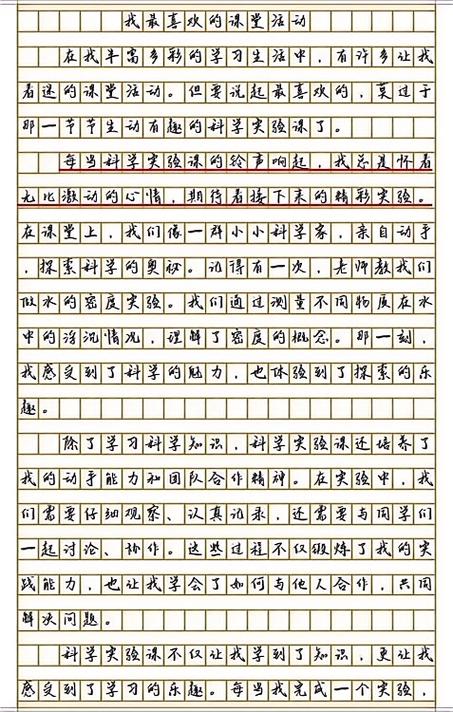 我最喜欢的课堂活动
在我丰富多彩的学习生活中，有许多让我
着迷的课堂活动。但要说起最喜欢的，莫过于
那一节节生动有趣的科学实验课了。
每当科学实验课的铃声响起，我总是怀着
无比激动的心情，期待着接下来的精彩实验。
在课堂上，我们像一群小小科学家，亲自动手
，探索科学的奥秘。记得有一次，老师教我们
做水的密度实验。我们通过测量不同物质在水
中的浮沉情况，理解了密度的概念。那一刻，
我感受到了科学的魅力，也体验到了探索的乐
趣。
除了学习科学知识，科学实验课还培养了
我的动手能力和团队合作精神。在实验中，我
们需要仔细观察、认真记录，还需要与同学们
一起讨论、协作。这些过程不仅锻炼了我的实
践能力，也让我学会了如何与他人合作，共同
解决问题。
科学实验课不仅让我学到了知识，更让我
感受到了学习的乐趣。每当我完成一个实验，